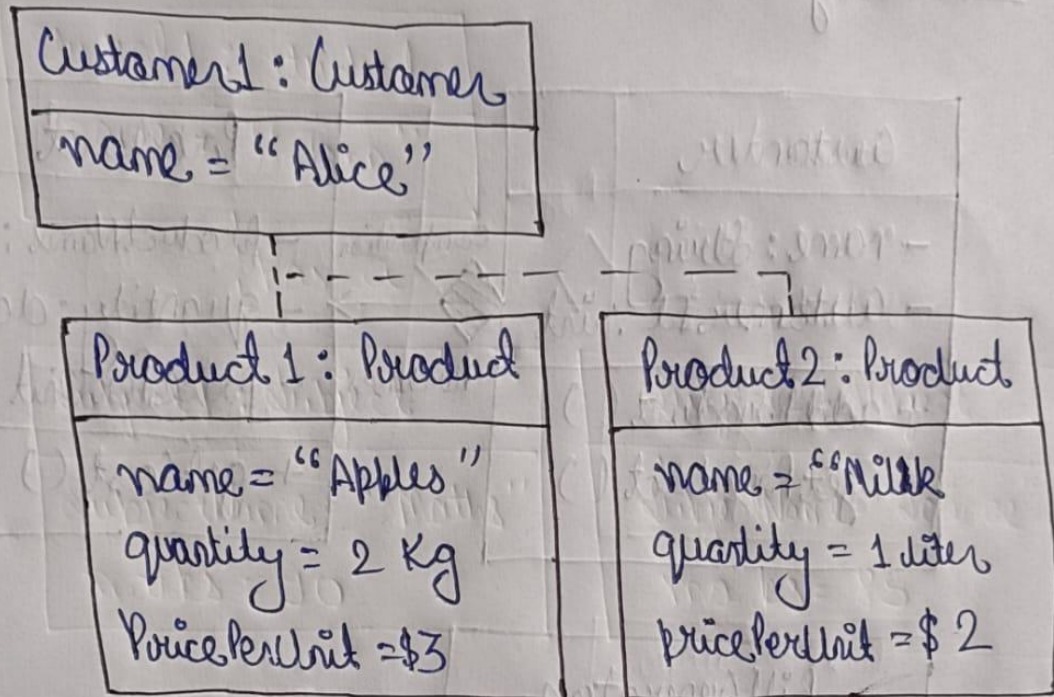 Customer1 : Customer
name = "Alice"
Product 1 : Product
name = "Apples"
quantity = 2 Kg
PricePerUnit = $3
Product 2 : Product
name = "Milk
quantity = 1 liter
pricePerUnit = $ 2